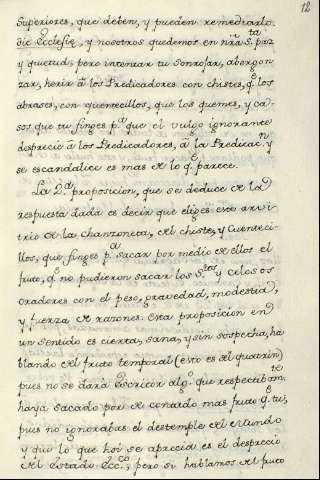 12
Superiores, que deben, y pueden remediarlo,
die Ecclesiæ, y nosotros quedemos en nrã Sta. paz
y quietud; pero intentar tu Sonrojar, abergon
zar, herir â los Predicadores con chistes, q.e los
abrases, con quentecillos, que los quemes, y ca-
sos que tu finges p.a que el vulgo ignorante
desprecie â los Predicadores, â la Predicac.n y
se escandalice es mas de lo q.e parece.
La 2.a proposicion, que se deduce de la
respuesta dada es decir que eliges este arvi-
trio de la Chanzoneta, del chiste, y Cuenteci-
llos, que finges p.a sacar por medio de ellos el
fruto, q.e no pudieron sacar los S.tos y celosos
oradores con el peso, gravedad, modestia,
y fuerza de razones. Esta proposicion en
un sentido es cierta, sana, y sin sospecha, ha
blando del fruto temporal (esto es del quatrin)
pues no se dará Escritor alg.o que respectibam.te
haya sacado por de contado mas fruto q.e tu,
pues no ignorabas el destemple del Mundo
y que lo que hoi se aprecia es el desprecio
del estado Ecc.co; pero si hablamos del fruto